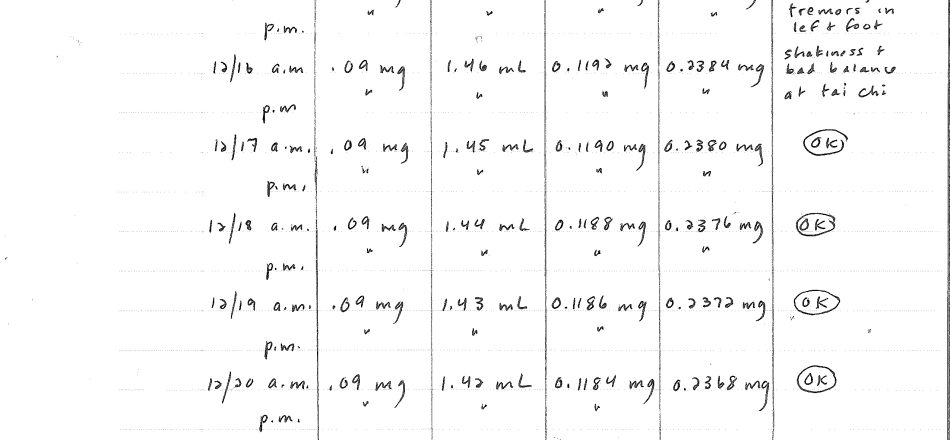 " " " " tremors in
p.m. left foot
12/16 a.m .09 mg 1.46 mL 0.1192 mg 0.2384 mg shakiness &
" " " " bad balance
p.m at tai chi
12/17 a.m. .09 mg 1.45 mL 0.1190 mg 0.2380 mg OK
" " " "
p.m.
12/18 a.m. .09 mg 1.44 mL 0.1188 mg 0.2376 mg OK
" " " "
p.m.
12/19 a.m. .09 mg 1.43 mL 0.1186 mg 0.2372 mg OK
" " "
p.m.
12/20 a.m. .09 mg 1.42 mL 0.1184 mg 0.2368 mg OK
" " "
p.m.